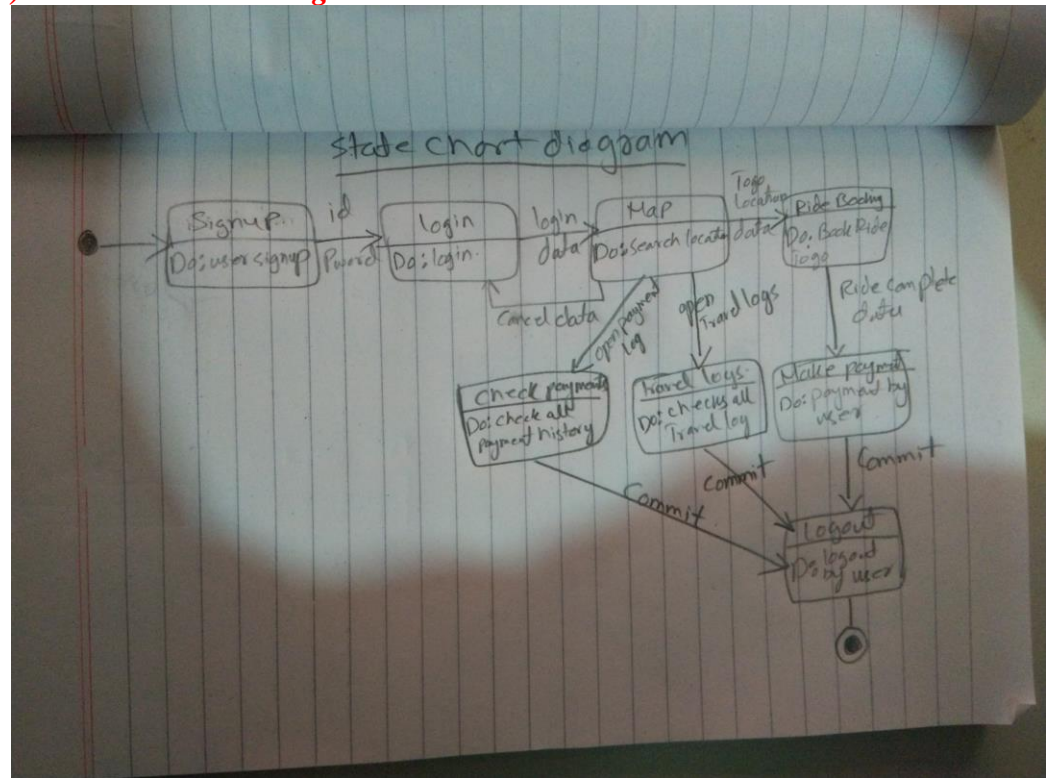 State chart diagram
Signup
Do: user signup
id
login
Do: login.
login
data
Map
Do: search locatn
Togo
Location
data
Ride Booking
Do: Book Ride
Togo
Cancel data
open payment
log
open
Travel logs
Ride complete
data
check payments
Do: check all
payment history
Travel logs
Do: checks all
Travel log
Make payment
Do: payment by
user
Commit
Commit
Commit
Logout
Do: logout
by user